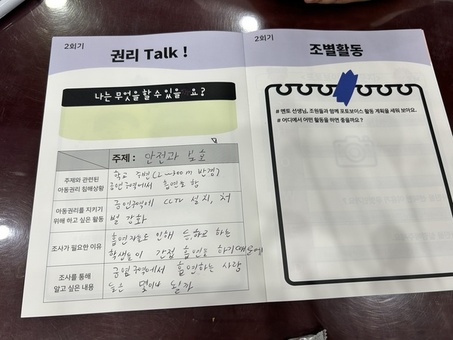 2회기
권리 Talk !
나는 무엇을 할 수 있을 요?
주제 : 안전과 보호
주제와 관련된
아동권리 침해상황
학교 주변(200m 반경)
금연구역에서 흡연도 함
아동권리를 지키기
위해 하고 싶은 활동
금연구역에 CCTV 설치, 처
벌 강화
조사가 필요한 이유
흡연자들로 인해 등,하교 하는
학생들이 간접 흡연을 하기 때문에
조사를 통해
알고 싶은 내용
금연구역에서 흡연하는 사람
들은 몇이나 될까
2회기
조별활동
# 멘토 선생님, 조원들과 함께 포토보이스 활동 계획을 세워 보아요.
# 어디에서 어떤 활동을 하면 좋을까요?